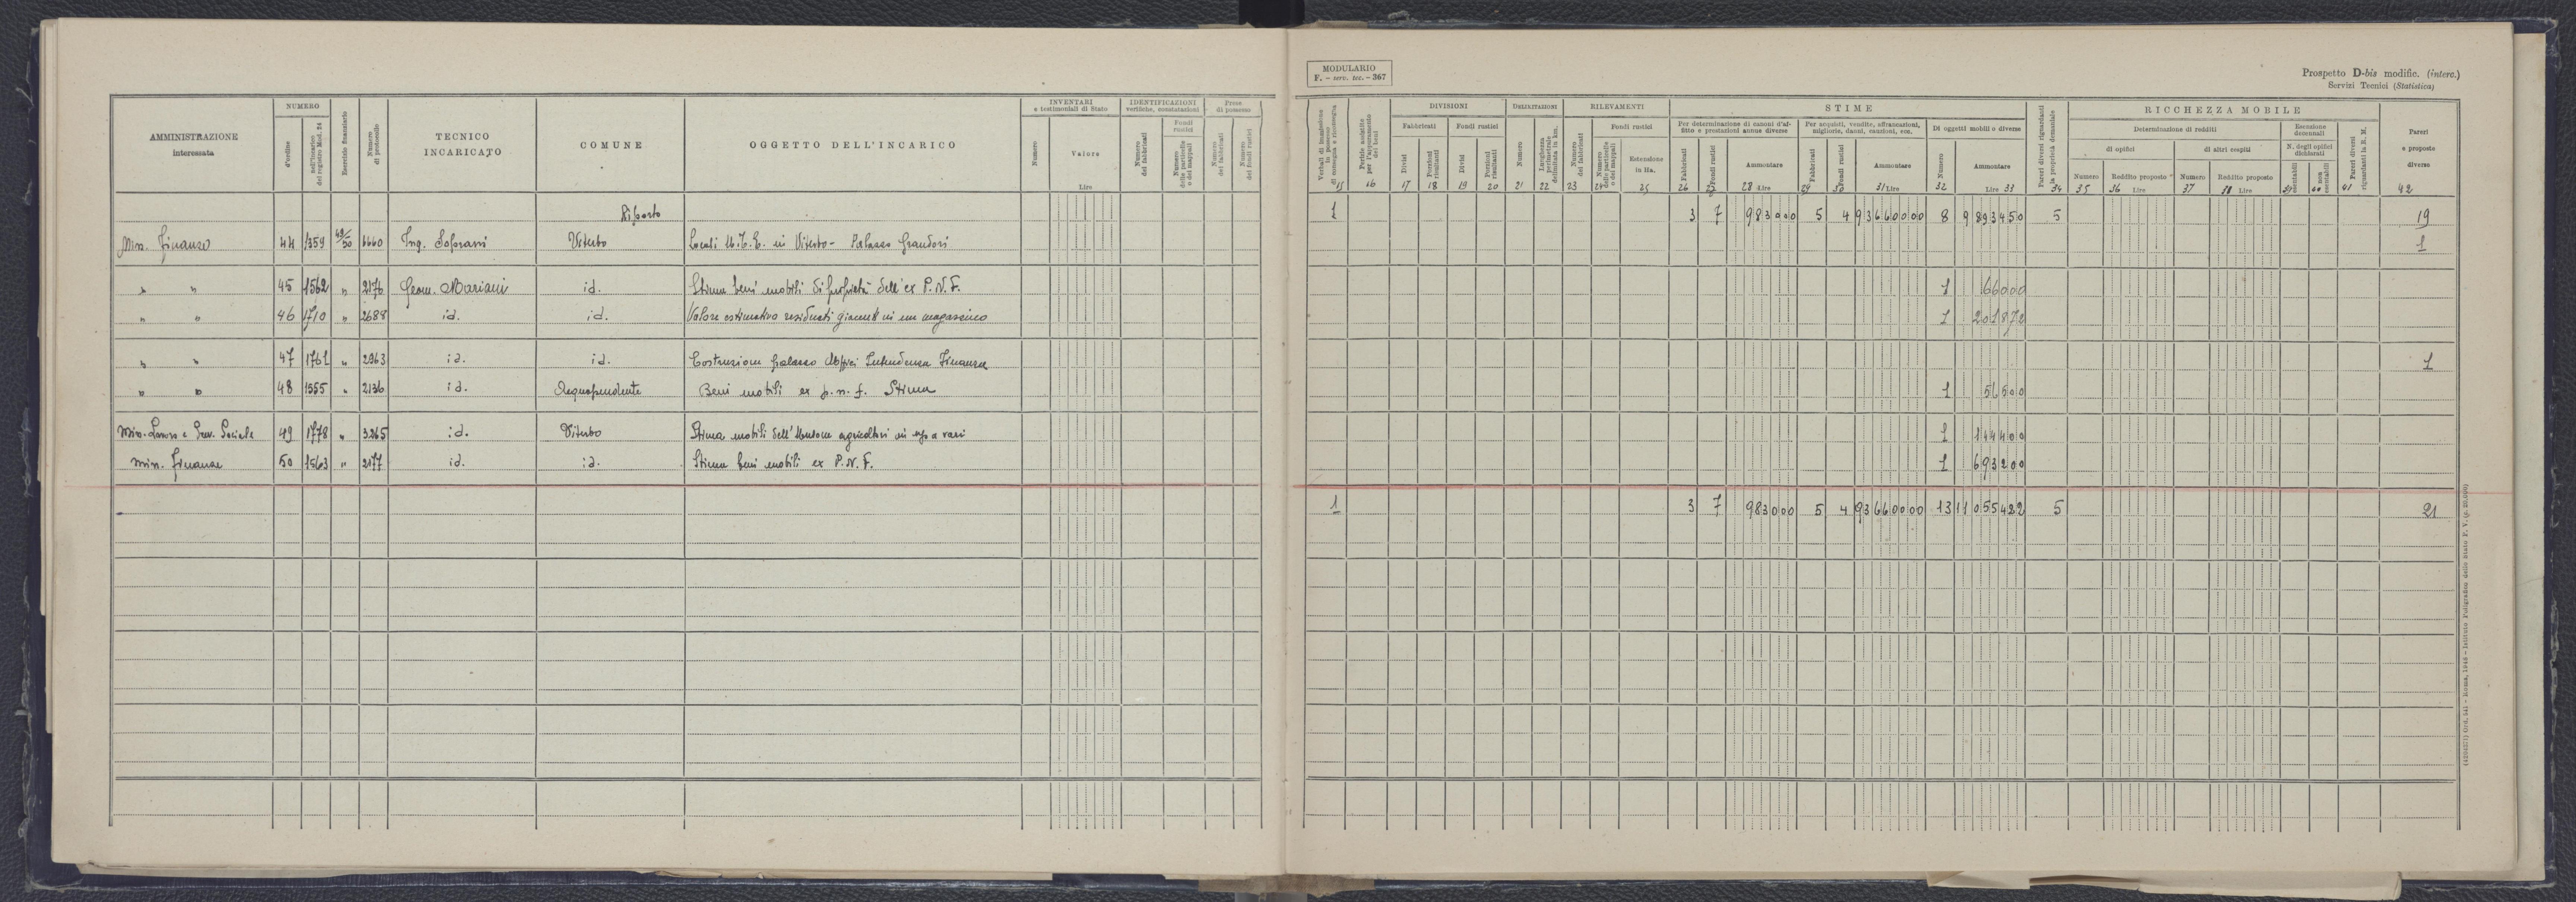 MODULARIO
F. - serv. tec. - 367
Prospetto D-bis modific. (interc.)
Servizi Tecnici (Statistica)
AMMINISTRAZIONE
interessata
NUMERO
d'ordine
dell'incarico
del registro Mod. 24
Esercizio finanziario
Numero
di protocollo
TECNICO
INCARICATO
COMUNE
OGGETTO DELL'INCARICO
INVENTARI
e testimoniali di Stato
Numero
Valore
Lire
IDENTIFICAZIONI
verifiche, constatazioni
Numero
dei fabbricati
Fondi
rustici
Numero
delle particelle
o dei mappali
Prese
di possesso
Numero
dei fabbricati
Numero
dei fondi rustici
Verbali di immissione
in possesso
di consegna e riconsegna
15
Perizie assistite
per l'appuramento
dei beni
16
DIVISIONI
Fabbricati
Divisi
17
Porzioni
risultanti
18
Fondi rustici
Divisi
19
Porzioni
risultanti
20
DELIMITAZIONI
Numero
21
Lunghezza
perimetrale
delimitata in km.
22
RILEVAMENTI
Numero
dei fabbricati
23
Fondi rustici
Numero
delle particelle
o dei mappali
24
Estensione
in Ha.
25
STIME
Per determinazione di canoni d'af-
fitto e prestazioni annue diverse
Fabbricati
26
Fondi rustici
Ammontare
28 Lire
Per acquisti, vendite, affrancazioni,
migliorie, danni, cauzioni, ecc.
Fabbricati
29
Fondi rustici
30
Ammontare
31 Lire
Di oggetti mobili o diverse
Numero
32
Ammontare
Lire 33
Pareri diversi riguardanti
la proprietà demaniale
34
RICCHEZZA MOBILE
Determinazione di redditi
di opifici
Numero
35
Reddito proposto
36 Lire
di altri cespiti
Numero
37
Reddito proposto
38 Lire
Esenzione
decennali
N. degli opifici
dichiarati
esentabili
39
non
esentabili
40
Pareri diversi
riguardanti la R. M.
41
Pareri
e proposte
diverse
42
Riporto 1 3 7 983000 5 4 93660000 8 9893450 5 19
Min. Finanze 44 1359 49/50 6660 Ing. Viterbo Locali U.T.E. in Viterbo - Palazzo Grandori 1
" " 45 1562 " 2176 Geom. Mariani id. Stima beni mobili di proprietà dell'ex P.N.F. 1 66000
" " 46 1710 " 2688 id. id. Valore estimativo residuati giacenti in un magazzino 1 201872
" " 47 1761 " 2963 id. id. Costruzione palazzo Uffici Intendenza Finanza 1
" " 48 1555 " 2136 id. Acquapendente Beni mobili ex p.n.f. Stima 1 56500
Min. Lavoro e Prev. Sociale 49 1778 " 3265 id. Viterbo Stima mobili dell'Unione agricoltori in uso a vari 1 144400
Min. Finanze 50 1563 " 2177 id. id. Stima beni mobili ex P.N.F. 1 693200
1 3 7 983000 5 4 93660000 13 11055422 5 21